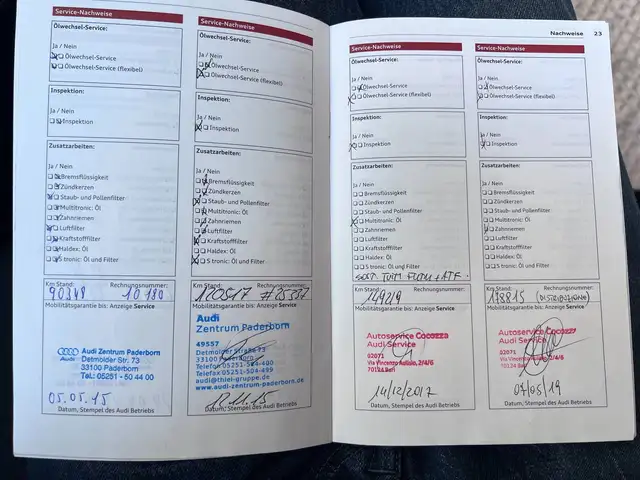 Service-Nachweise
Ölwechsel-Service:
Ja / Nein
Ölwechsel-Service
Ölwechsel-Service (flexibel)
Inspektion:
Ja / Nein
Inspektion
Zusatzarbeiten:
Ja / Nein
Bremsflüssigkeit
Zündkerzen
Staub- und Pollenfilter
Multitronic: Öl
Zahnriemen
Luftfilter
Kraftstofffilter
Haldex: Öl
S tronic: Öl und Filter
Km Stand: Rechnungsnummer:
90348 10 180
Mobilitätsgarantie bis: Anzeige Service
Audi Zentrum Paderborn
Detmolder Str. 73
33100 Paderborn
Tel.: 05251 - 50 44 00
05.05.15
Datum, Stempel des Audi Betriebs
Service-Nachweise
Ölwechsel-Service:
Ja / Nein
Ölwechsel-Service
Ölwechsel-Service (flexibel)
Inspektion:
Ja / Nein
Inspektion
Zusatzarbeiten:
Ja / Nein
Bremsflüssigkeit
Zündkerzen
Staub- und Pollenfilter
Multitronic: Öl
Zahnriemen
Luftfilter
Kraftstofffilter
Haldex: Öl
S tronic: Öl und Filter
Km Stand: Rechnungsnummer:
120517
Mobilitätsgarantie bis: Anzeige Service
Audi
Zentrum Paderborn
49557
Detmolder Straße 73
33100 Paderborn
Telefon 05251-504-400
Telefax 05251-504-499
audi@thiel-gruppe.de
www.audi-zentrum-paderborn.de
Datum, Stempel des Audi Betriebs
Nachweise 23
Service-Nachweise
Ölwechsel-Service:
Ja / Nein
Ölwechsel-Service
Ölwechsel-Service (flexibel)
Inspektion:
Ja / Nein
Inspektion
Zusatzarbeiten:
Ja / Nein
Bremsflüssigkeit
Zündkerzen
Staub- und Pollenfilter
Multitronic: Öl
Zahnriemen
Luftfilter
Kraftstofffilter
Haldex: Öl
S tronic: Öl und Filter
Km Stand: Rechnungsnummer:
149219
Mobilitätsgarantie bis: Anzeige Service
Autoservice Cocozza
Audi Service
02071
70124 Bari
14/12/2017
Datum, Stempel des Audi Betriebs
Service-Nachweise
Ölwechsel-Service:
Ja / Nein
Ölwechsel-Service
Ölwechsel-Service (flexibel)
Inspektion:
Ja / Nein
Inspektion
Zusatzarbeiten:
Ja / Nein
Bremsflüssigkeit
Zündkerzen
Staub- und Pollenfilter
Multitronic: Öl
Zahnriemen
Luftfilter
Kraftstofffilter
Haldex: Öl
S tronic: Öl und Filter
Km Stand: Rechnungsnummer:
(DISTRIBUZIONE)
Mobilitätsgarantie bis: Anzeige Service
Autoservice Cocozza
Audi Service
02071
07/05/19
Datum, Stempel des Audi Betriebs